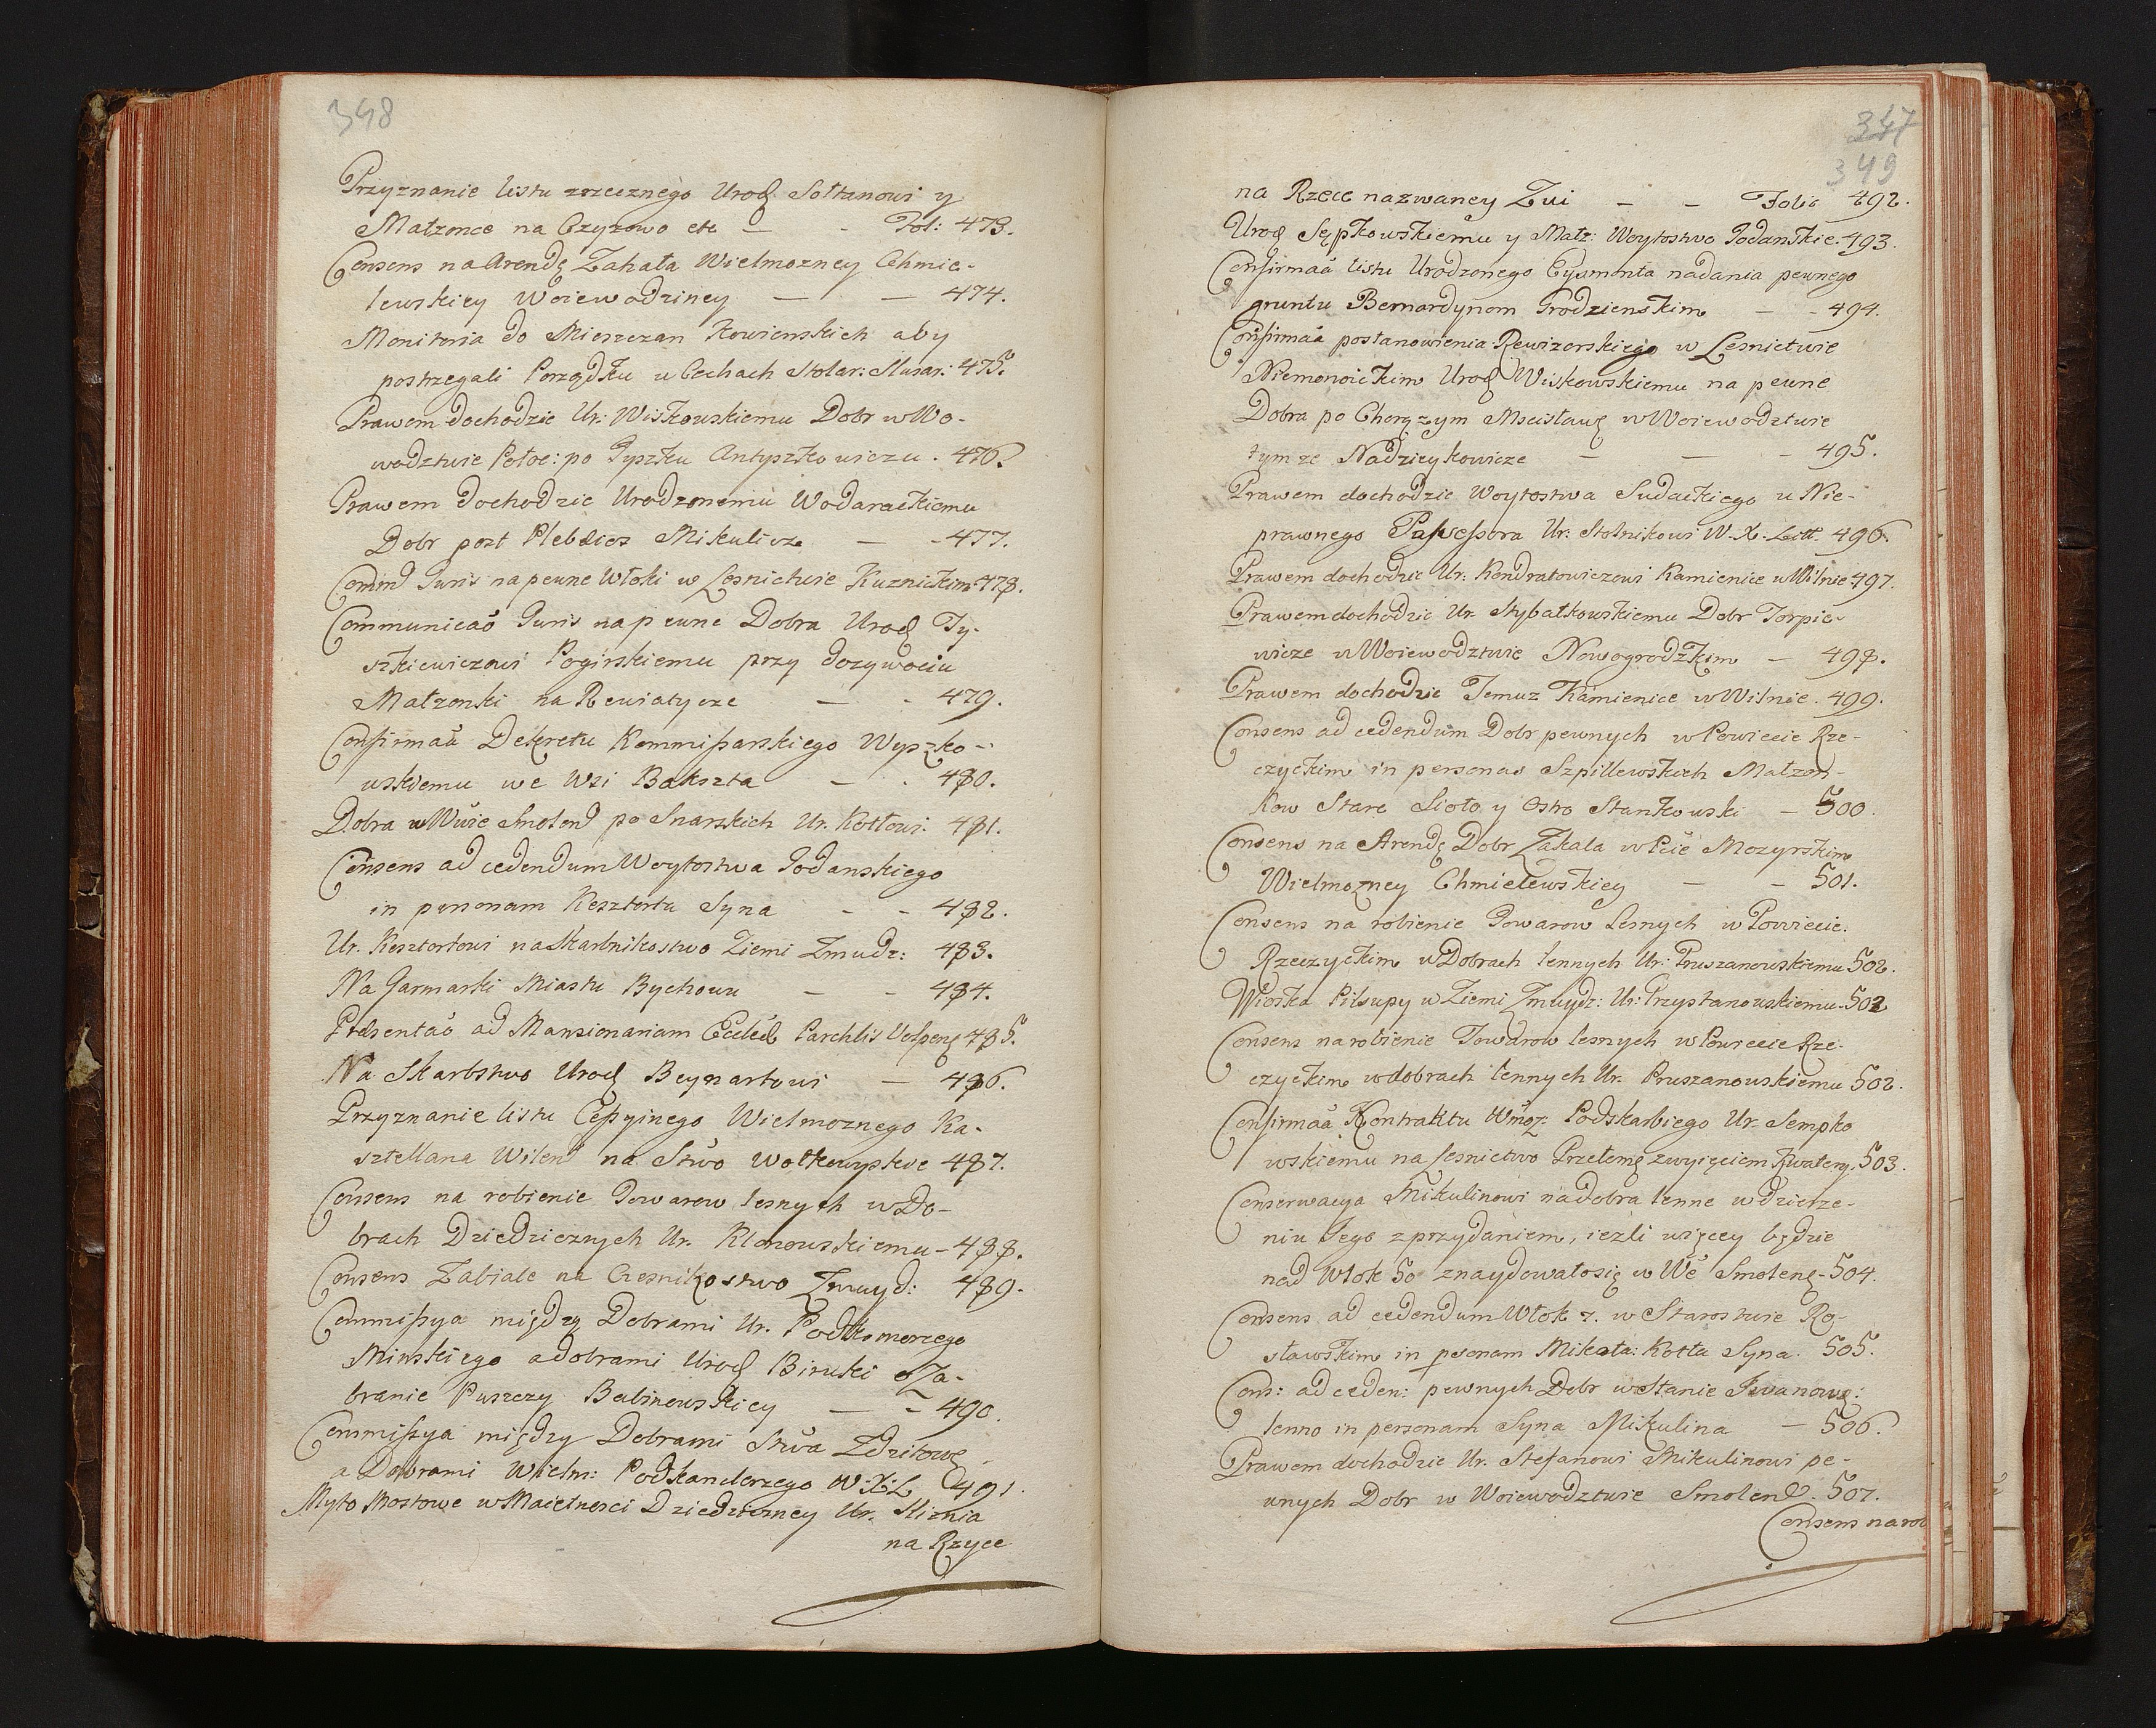 348
Przyznanie listu zrzecznego Urod Sołtanowi y
Małzonce na Czyzowo etc — - Fol: 473.
Consens na Arendę Zahala Wielmozney Chmie-
lewskiey Woiewodziney — — 474.
Monitoria do Mieszczan Kowienskich aby
postrzegali Porządku w Cechach Stolar: Slusar: 475.
Prawem dochodzic Ur: Wiszkowskiemu Dobr w Wo-
wodztwie Połoc: po Pyszku Antyszkowiczu. 476.
Prawem dochodzic Urodzonemu Wodarackiemu
Dobr post Plebeios Mikulicze — - 477.
Comm Juris na pewne Włoki w Lesnictwie Kuznickim 478.
Communicaõ Juris na pewne Dobra Urod Ty-
szkiewiczowi Pogirskiemu przy dozywociu
Małzonki na Rewiatycze — - 479.
Confirmaã Dekretu Kommissarskiego Wyszko-
wskiemu we Wsi Bakszta — . 480.
Dobra w Wwie Smolen po Snarskich Ur. Kottowi. 481.
Consens ad cedendum Woytostwa Podanskiego
in personam Kesztortu Syna - - 482.
Ur. Kesztortowi na Skarbnikostwo Ziemi Zmudz: 483.
Na Jarmarki Miastu Bychowu — - 484.
Presentaõ ad Mansionariam Eccles Parchlis Volpens 485.
Na Skarbstwo Urod Beynartowi — 486.
Przyznanie listu Cessyinego Wielmoznego Ka-
sztellana Wilen na Stwo Wołkowyskie 487.
Consens na robienie Towarow lesnych w Do-
brach Dziedzicznych Ur. Klonowskiemu - 488.
Consens Zabiale na Czesnikostwo Zmuyd: 489.
Commissya między Dobrami Ur. Podkomorzego
Minskiego a dobrami Urod Biruki o Za-
branie Puszczy Balinowskiey — - 490.
Commissya między Dobrami Stwa Zdzitows
a Dobrami Wielm: Podkanclerzego W.X.L 491.
Myto Mostowe w Maiętnosci Dziedziczney Ur. Sliznia
na Rzyce
347
349
na Rzece nazwaney Zui — - Folio 492.
Urod Sępkowskiemu y Małz: Woytostwo Podanskie. 493.
Confirmaã listu Urodzonego Eysmonta nadania pewnego
gruntu Bernardynom Grodzienskim — - 494.
Confirmaã postanowienia Rewizorskiego w Lesnictwie
Niemonoickim Urod Wiskowskiemu na pewne
Dobra po Chorązym Mscislaws w Woiewodztwie
tymze Nadzieykowicze — — - 495.
Prawem dochodzic Woytostwa Sudackiego u Nie-
prawnego Possessora Ur: Stolnikowi W. X. Litt. 496.
Prawem dochodzic Ur: Kondratowiczowi Kamienice w Wilnie 497.
Prawem dochodzic Ur. Stybałkowskiemu Dobr Torpie-
wicze w Woiewodztwie Nowogrodzkim — 498.
Prawem dochodzic Temuz Kamienice w Wilnie. 499.
Consens ad cedendum Dobr pewnych w Powiecie Rze-
czyckim in personas Szpillewskich Małzon-
kow Stare Sioło y Ostro Stankowski — 500.
Consens na Arendę Dobr Zakala w Pcie Mozyrskim
Wielmozney Chmielewskiey — - 501.
Consens na robienie Towarow Lesnych w Powiecie.
Rzeczyckim w Dobrach lennych Ur: Pruszanowskiemu 502.
Wioska Pilsupy w Ziemi Zmuydz: Ur: Przystanowskiemu. 502
Consens na robienie Towarow lesnych w Powiecie Rze-
czyckim w dobrach lennych Ur. Pruszanowskiemu 502.
Confirmaã Kontraktu Wmoz: Podskarbiego Ur. Sempko
wskiemu na Lesnictwo Przełoms z wyięciem Kwatery. 503.
Conserwacya Mikulinowi na dobra lenne w dzierze-
niu Jego z przydaniem, iezli więcey będzie
nad Włok 50 znaydowało się w We Smolens - 504.
Consens ad cedendum Włok 7. w Starostwie Ro-
sławskim in pesonam Mikoła: Kotła Syna. 505.
Cons: ad ceden: pewnych Dobr w Stanie Iwanows:
lenno in personam Syna Mikulina — 506.
Prawem dochodzic Ur. Stefanowi Mikulinowi pe-
wnych Dobr w Woiewodztwie Smolens. 507.
Consens na rob